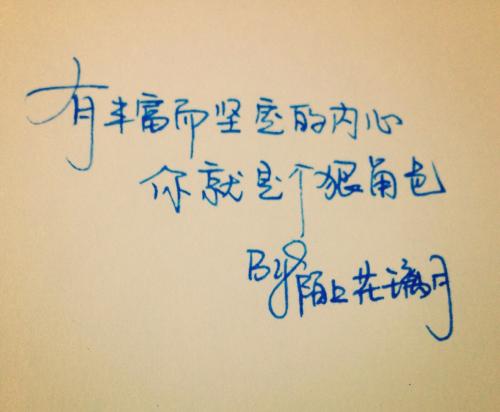 有丰富而坚定的内心
你就是个狠角色
By陌上花璃月